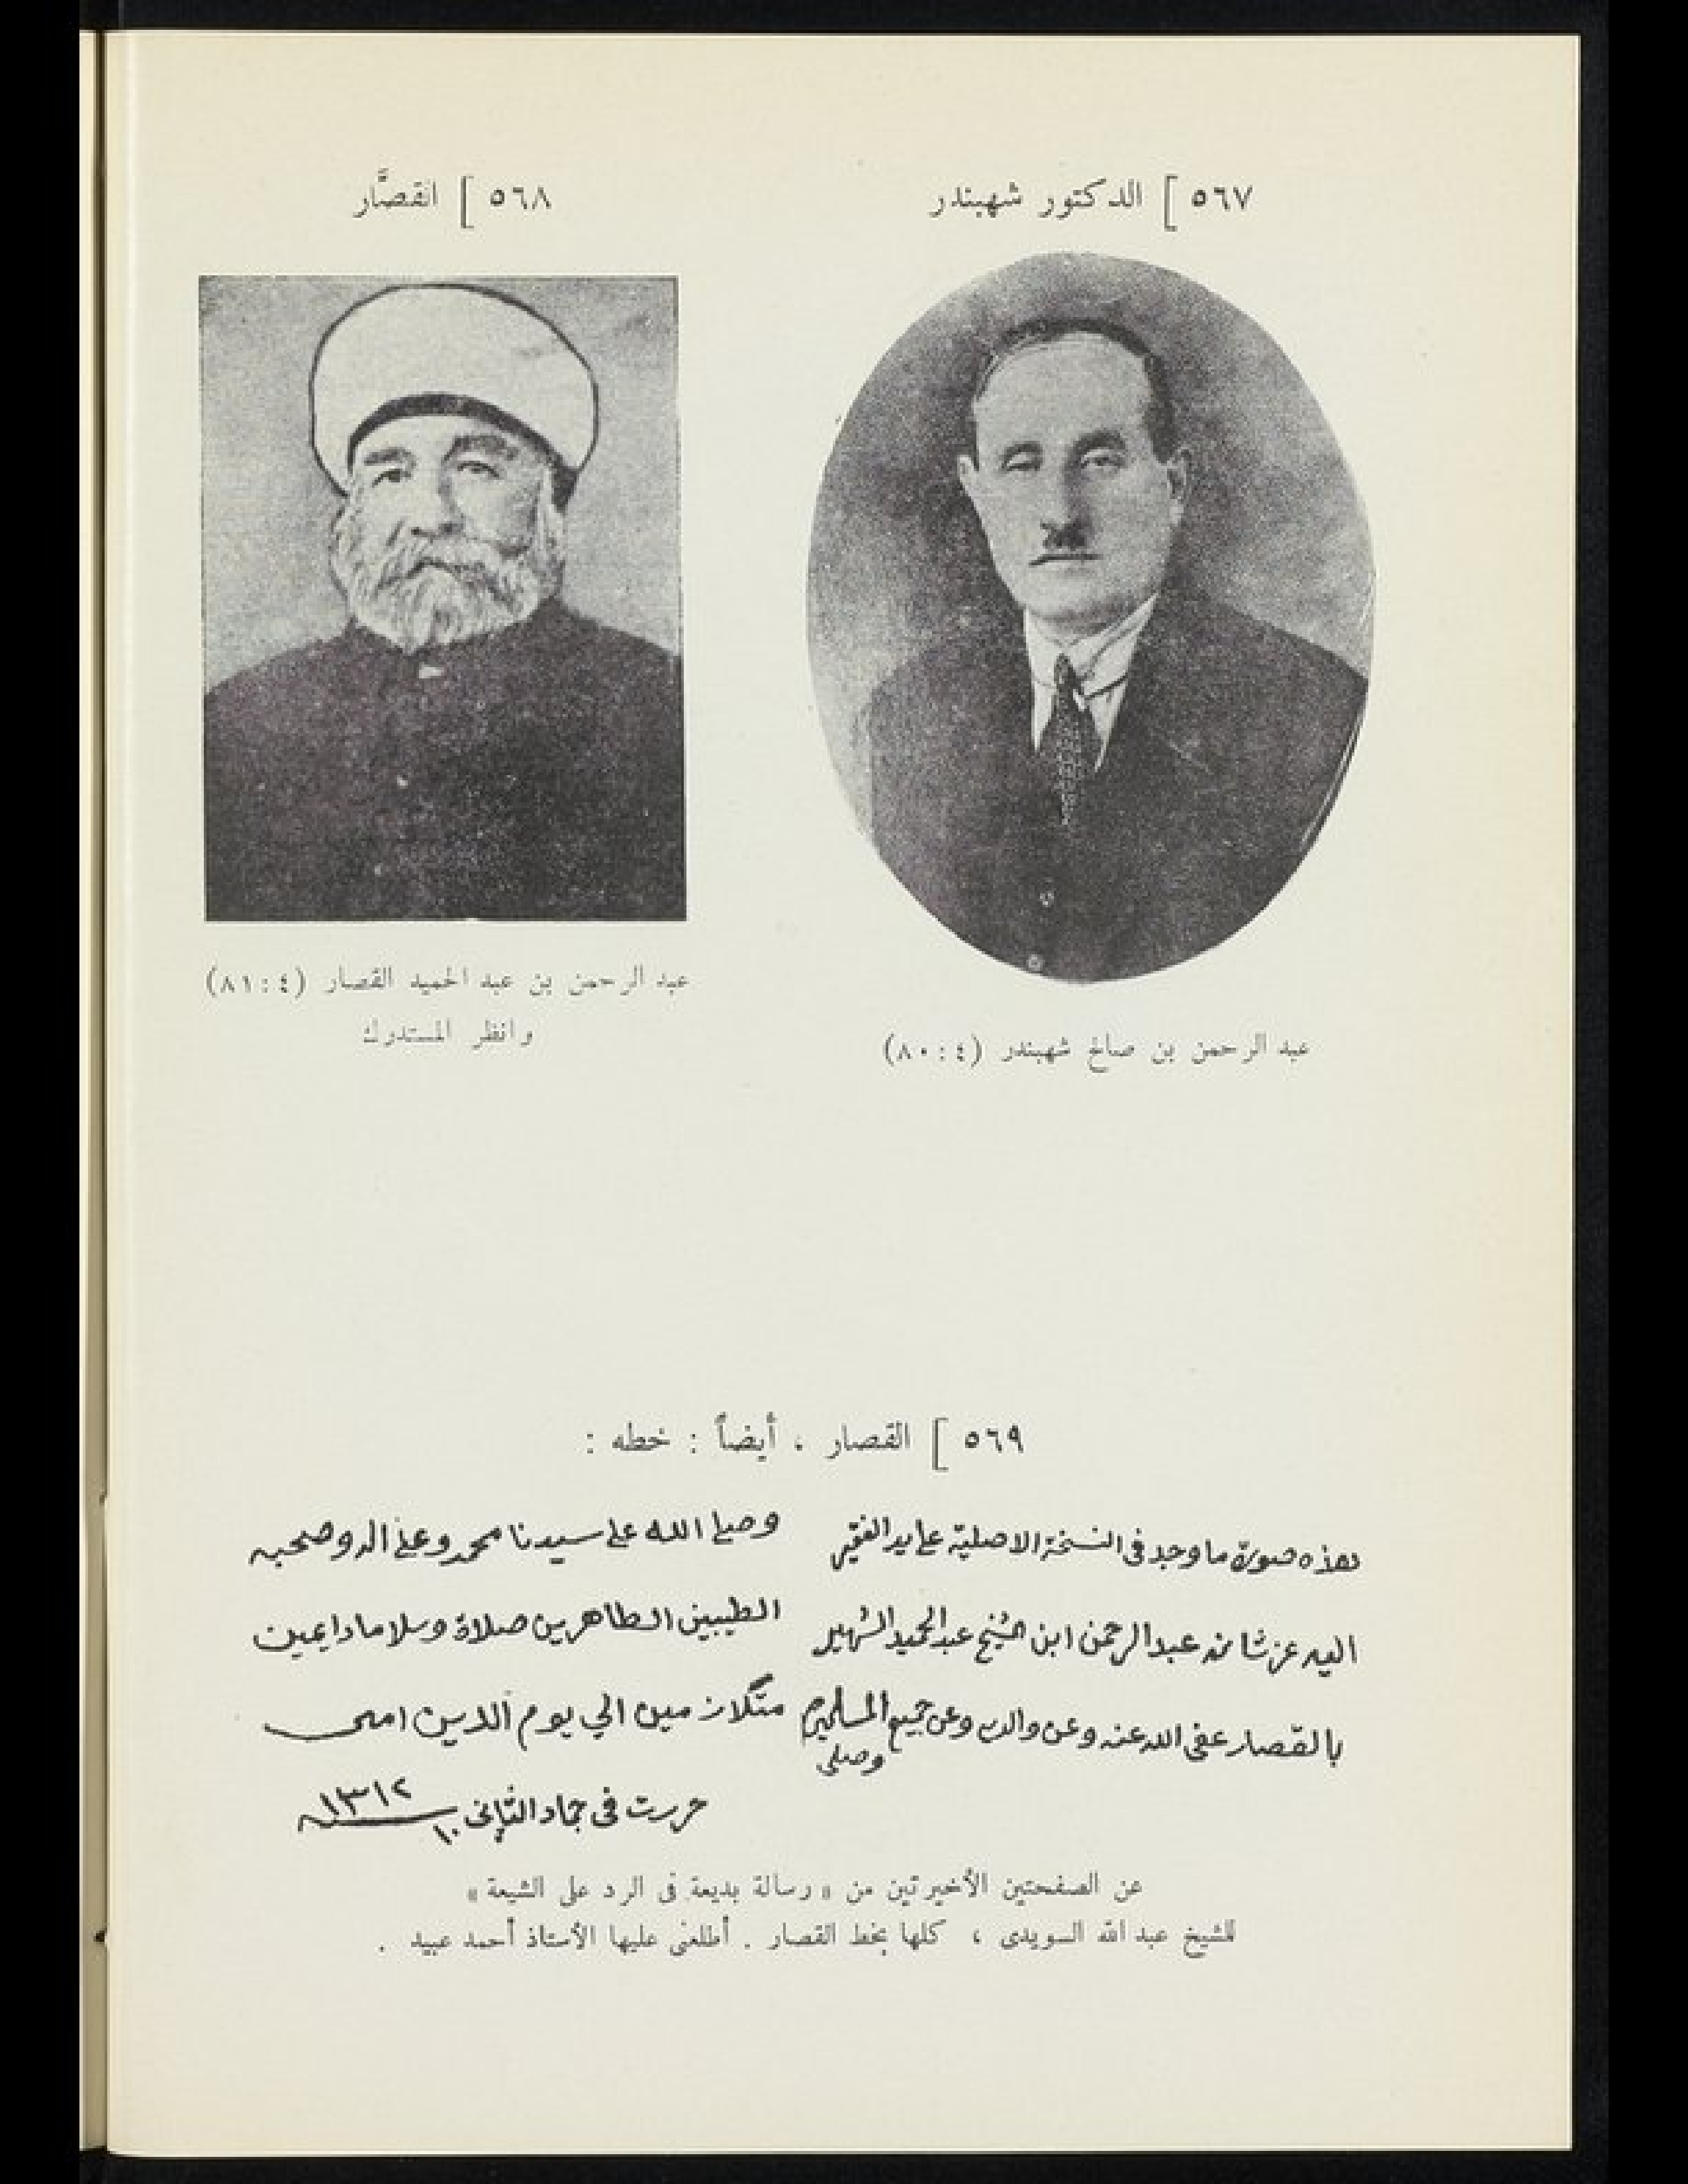 ٥٦٧ ] الدكتور شهبندر
٥٦٨ ] القصَّار
عبد الرحمن بن صالح شهبندر (٤ : ٨٠)
عبد الرحمن بن عبد الحميد القصار (٤ : ٨١)
وانظر المستدرك
٥٦٩ ] القصار ، أيضاً : خطه :
هذه صورة ما وجد في النسخة الاصلية على يد الفقير
اليه عز شانه عبد الرحمن ابن الشيخ عبد الحميد الشهير
بالقصار عفى الله عنه وعن والديه وعن جميع المسلمين
وصلى
وصلى الله على سيدنا محمد وعلى اله وصحبه
الطيبين الطاهرين صلاة وسلاما دايمين
متلازمين الي يوم الدين امين
حررت في جماد الثاني ١٠ ١٣١٢
عن الصفحتين الأخيرتين من « رسالة بديعة في الرد على الشيعة »
للشيخ عبد الله السويدى ، كلها بخط القصار . أطلعنى عليها الأستاذ أحمد عبيد .